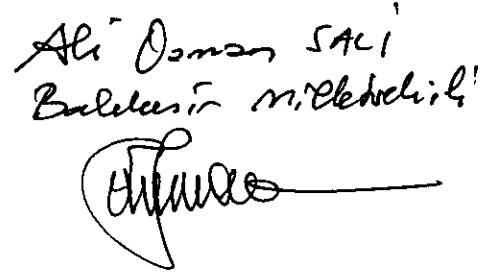 Ali Osman SALİ
Balıkesir Milletvekili